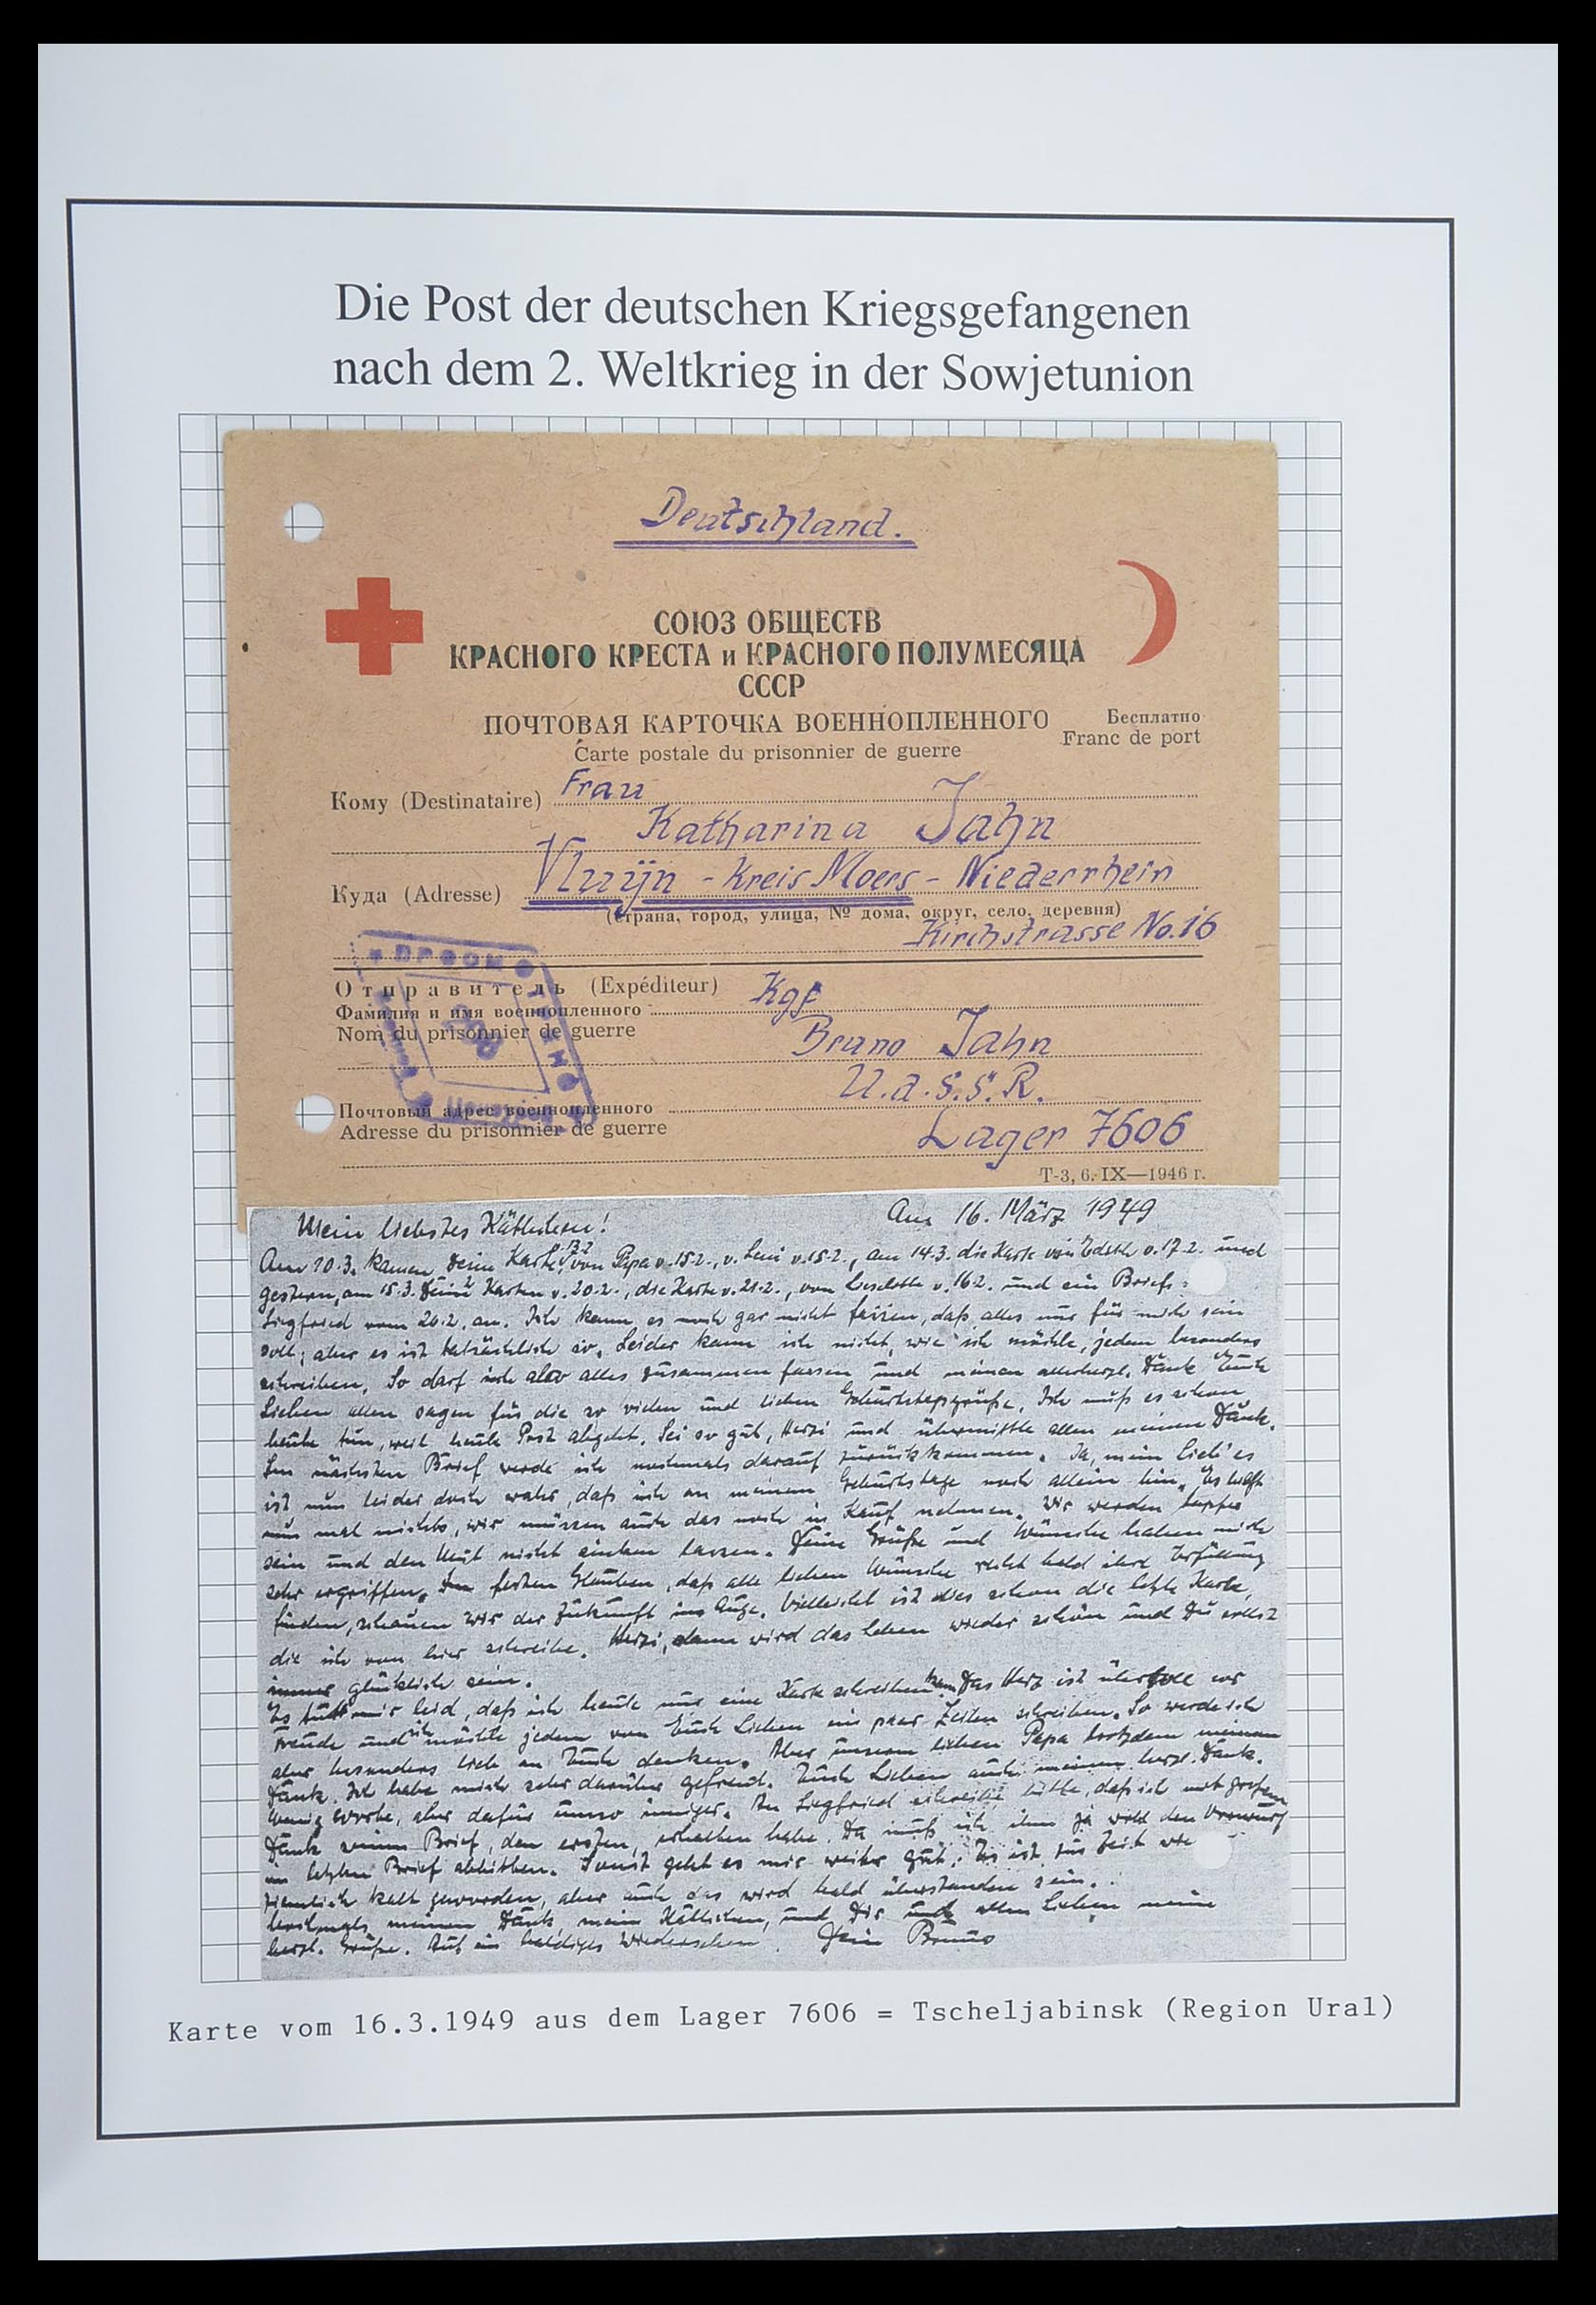 Die Post der deutschen Kriegsgefangenen
nach dem 2. Weltkrieg in der Sowjetunion
Deutschland.
СОЮЗ ОБЩЕСТВ
КРАСНОГО КРЕСТА и КРАСНОГО ПОЛУМЕСЯЦА
СССР
ПОЧТОВАЯ КАРТОЧКА ВОЕННОПЛЕННОГО
Бесплатно
Carte postale du prisonnier de guerre
Franc de port
Кому (Destinataire) Frau
Katharina Jahn
Куда (Adresse) Vluyn - Kreis Moers - Niederrhein
(страна, город, улица, № дома, округ, село, деревня)
Kirchstrasse No. 16
Отправитель (Expéditeur) Kgf
Фамилия и имя военнопленного
Nom du prisonnier de guerre
Bruno Jahn
U.d.S.S.R.
Почтовый адрес военнопленного
Adresse du prisonnier de guerre
Lager 7606
Т-3, 6. IX—1946 г.
Am 16. März 1949
Mein liebstes Käthchen!
Am 10.3. kamen Deine Karte v. 13.2. von Papa v. 15.2., v. Leni v. 15.2., am 14.3. die Karte von Edith v. 17.2. und
gestern, am 15.3. Deine 2 Karten v. 20.2., die Karte v. 21.2., von Liselotte v. 16.2. und ein Brief
Siegfried vom 20.2. an. Ich kann es noch gar nicht fassen, daß alles nur für mich sein
soll; aber es ist tatsächlich so. Leider kann ich nicht, wie ich möchte, jedem besonders
schreiben. So darf ich also alles zusammen fassen und meinen allerherzl. Dank Euch
Lieben allen sagen für die so vielen und lieben Geburtstagsgrüße. Ich muß es schon
heute tun, weil heute Post abgeht. Sei so gut, Herzi und übermittle allen meinen Dank.
Im nächsten Brief werde ich nochmals darauf zurückkommen. Ja, mein Lieb' es
ist nun leider doch wahr, daß ich an meinem Geburtstage noch allein bin. Es hilft
nun mal nichts, wir müssen auch das noch in Kauf nehmen. Wir werden tapfer
sein und den Mut nicht sinken lassen. Deine Grüße und Wünsche haben mich
sehr ergriffen. Im festen Glauben, daß alle lieben Wünsche recht bald ihre Erfüllung
finden, schauen wir der Zukunft ins Auge. Vielleicht ist dies schon die letzte Karte,
die ich von hier schreibe. Herzi, dann wird das Leben wieder schön und Du sollst
immer glücklich sein.
Es tut mir leid, daß ich heute nur eine Karte schreiben kann. Das Herz ist übervoll vor
Freude und ich möchte jedem von Euch Lieben ein paar Zeilen schreiben. So werde ich
aber besonders lieb an Euch denken. Aber unserm lieben Papa trotzdem meinen
Dank. Ich habe mich sehr darüber gefreut. Euch Lieben auch meinen herzl. Dank.
Wenig Worte, aber dafür umso inniger. An Siegfried schreibe bitte, daß ich mit großem
Dank seinen Brief, den ersten, erhalten habe. Da muß ich ihm ja wohl den Vorwurf
im letzten Brief abbitten. Sonst geht es mir weiter gut. Es ist zur Zeit
ziemlich kalt geworden, aber auch das wird bald überstanden sein.
Nochmals meinen Dank, mein Käthchen, und Dir und allen Lieben meine
herzl. Grüße. Auf ein baldiges Wiedersehen. Dein Bruno
Karte vom 16.3.1949 aus dem Lager 7606 = Tscheljabinsk (Region Ural)